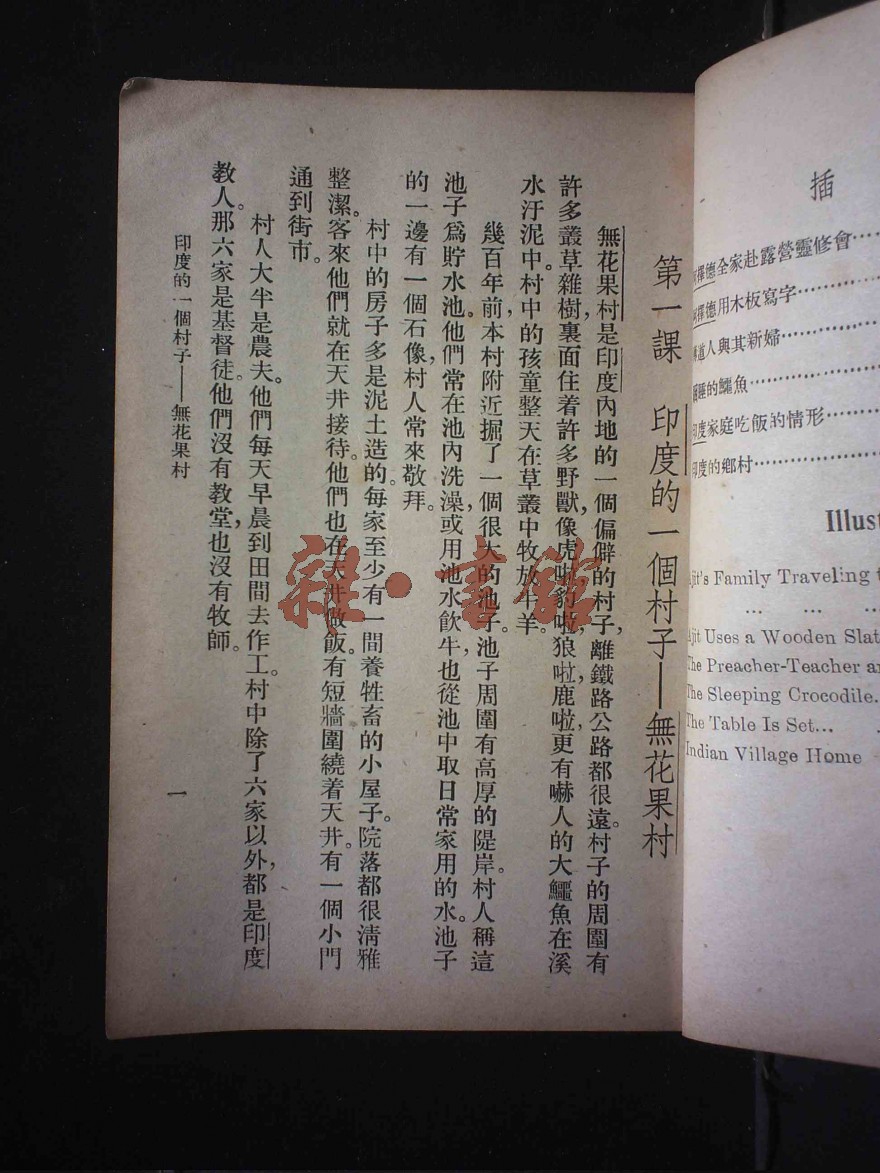 插
釋德全家赴露營靈修會……
釋德用木板寫字……
道人與其新婦……
睡的鱷魚……
印度家庭吃飯的情形……
印度的鄉村……
Illust
Ajit's Family Traveling t
... ... ...
Ajit Uses a Wooden Slat
The Preacher-Teacher a
The Sleeping Crocodile.
The Table Is Set...
Indian Village Home
第一課 印度的一個村子——無花果村
無花果村是印度內地的一個偏僻的村子,離鐵路公路都很遠。村子的周圍有
許多叢草雜樹,裏面住着許多野獸,像虎啦,豹啦,狼啦,鹿啦,更有嚇人的大鱷魚在溪
水汙泥中。村中的孩童整天在草叢中牧放牛羊。
幾百年前,本村附近掘了一個很大的池子。池子周圍有高厚的隄岸。村人稱這
池子爲貯水池。他們常在池內洗澡,或用池水飲牛,也從池中取日常家用的水。池子
的一邊有一個石像,村人常來敬拜。
村中的房子多是泥土造的。每家至少有一間養牲畜的小屋子。院落都很清雅
整潔。客來他們就在天井接待。他們也在天井做飯。有短牆圍繞着天井。有一個小門
通到街市。
村人大半是農夫。他們每天早晨到田間去作工。村中除了六家以外,都是印度
教人。那六家是基督徒。他們沒有教堂,也沒有牧師。
印度的一個村子——無花果村
一
雜·書館